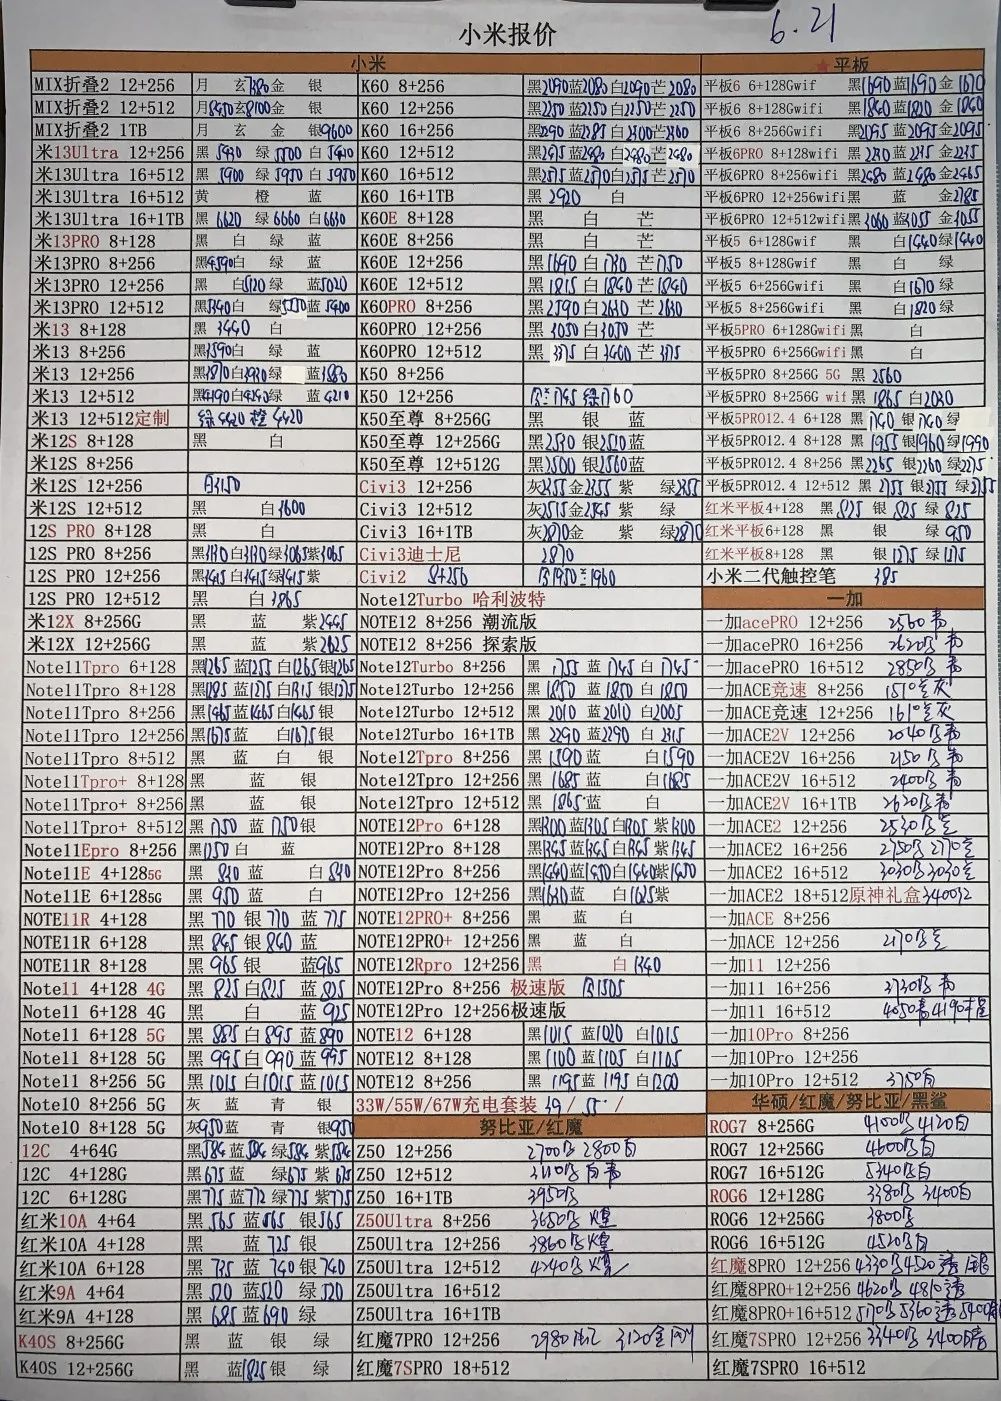 6.21
小米报价
小米
MIX折叠2 12+256 月 玄7380金 银
MIX折叠2 12+512 月8450玄8100金 银
MIX折叠2 1TB 月 玄 金 银9600
米13Ultra 12+256 黑 5430 绿 5500 白 5410
米13Ultra 16+512 黑 5900 绿 5950 白 5950
米13Ultra 16+512 黄 橙 蓝
米13Ultra 16+1TB 黑 6620 绿 6660 白6630
米13PRO 8+128 黑 白 绿 蓝
米13PRO 8+256 黑4590白 绿 蓝
米13PRO 12+256 黑 白5120 绿 蓝5020
米13PRO 12+512 黑5340白 绿 蓝 5400
米13 8+128 黑 3440 白
米13 8+256 黑3590白 绿 蓝
米13 12+256 黑3870白3930绿 蓝3880
米13 12+512 黑4190白4240绿 蓝 4210
米13 12+512定制 绿 4420 橙 4420
米12S 8+128 黑 白
米12S 8+256
米12S 12+256 白3150
米12S 12+512 黑 白3600
12S PRO 8+128 黑 白
12S PRO 8+256 黑3130白3130绿3065紫3065
12S PRO 12+256 黑3415白3415绿3415紫
12S PRO 12+512 黑 白3865
米12X 8+256G 黑 蓝 紫2445
米12X 12+256G 黑 蓝 紫2625
Note11Tpro 6+128 黑1265蓝1255白1265银1265
Note11Tpro 8+128 黑1285蓝1275白1315银1275
Note11Tpro 8+256 黑1465蓝1465白1465银
Note11Tpro 12+256 黑1675蓝 白1675银
Note11Tpro 8+512 黑 蓝 白 银
Note11Tpro+ 8+128 黑 蓝 银
Note11Tpro+ 8+256 黑 蓝 银
Note11Tpro+ 8+512 黑 1750 蓝 1750银
Note11Epro 8+256 黑1250白 蓝
Note11E 4+1285G 黑 830 蓝 白 830
Note11E 6+1285G 黑 950 蓝 白
NOTE11R 4+128 黑 770 银 770 蓝 775
NOTE11R 6+128 黑 845 银 840 蓝
NOTE11R 8+128 黑 965 银 蓝965
Note11 4+128 4G 黑 825 白825 蓝 825
Note11 6+128 4G 黑 白 蓝 925
Note11 6+128 5G 黑 885 白 895 蓝 890
Note11 8+128 5G 黑 995 白 990 蓝 995
Note11 8+256 5G 黑 1015 白1015 蓝1015
Note10 8+256 5G 灰 蓝 青 银
Note10 8+128 5G 灰950蓝 青 银950
12C 4+64G 黑584 蓝584 绿584 紫584
12C 4+128G 黑675 蓝 绿675 紫675
12C 6+128G 黑775 蓝772 绿775 紫775
红米10A 4+64 黑 565 蓝565 银565
红米10A 4+128 黑 蓝 725 银
红米10A 6+128 黑 735 蓝 740银740
红米9A 4+64 黑 520 蓝520 绿 520
红米9A 4+128 黑 685 蓝690 绿
K40S 8+256G 黑 蓝 银 绿
K40S 12+256G 黑 蓝1825银 绿
K60 8+256 黑2090蓝2080白2090芒2080
K60 12+256 黑2250蓝2250白2250芒2250
K60 16+256 黑2290蓝2285白2300芒2300
K60 12+512 黑2475蓝2480白2480芒2480
K60 16+512 黑2575蓝2570白2575芒2570
K60 16+1TB 黑 2920 白
K60E 8+128 黑 白 芒
K60E 8+256 黑 白 芒
K60E 12+256 黑1690白1730芒1750
K60E 12+512 黑1815白1840芒1840
K60PRO 8+256 黑2590白2630芒2630
K60PRO 12+256 黑3050白3070 芒
K60PRO 12+512 黑3375白3400芒3375
K50 8+256
K50 12+256 灰1745绿1760
K50至尊 8+256G 黑 银 蓝
K50至尊 12+256G 黑2530银2510蓝
K50至尊 12+512G 黑2500银2560蓝
Civi3 12+256 灰2355金2355紫 绿2355
Civi3 12+512 灰2515金2545紫 绿
Civi3 16+1TB 灰2870金 紫 绿2870
Civi3迪士尼 2870
Civi2 8+256
Note12Turbo 哈利波特
NOTE12 8+256 潮流版
NOTE12 8+256 探索版
Note12Turbo 8+256 黑 1755 蓝 1745 白 1745
Note12Turbo 12+256 黑 1850 蓝 1850 白 1850
Note12Turbo 12+512 黑 2010 蓝2010 白2005
Note12Turbo 16+1TB 黑 2290 蓝2290 白 2315
Note12Tpro 8+256 黑 1590 蓝 白1590
Note12Tpro 12+256 黑 1685 蓝 白1685
Note12Tpro 12+512 黑 1865 蓝 白
NOTE12Pro 6+128 黑1300蓝1305白1305紫1300
NOTE12Pro 8+128 黑1345蓝1345白1345紫1345
NOTE12Pro 8+256 黑1440蓝1450白1440紫1450
NOTE12Pro 12+256 黑1630蓝 白1625紫
NOTE12PRO+ 8+256 黑 蓝 白
NOTE12PRO+ 12+256 黑 蓝 白
NOTE12Rpro 12+256 黑 白1340
NOTE12Pro 8+256 极速版
NOTE12Pro 12+256极速版
NOTE12 6+128 黑1015 蓝1020 白1015
NOTE12 8+128 黑1100 蓝1105 白1105
NOTE12 8+256 黑 1195蓝 1195 白1200
33W/55W/67W充电套装 39/ 55 /
努比亚/红魔
Z50 12+256 2700 2800白
Z50 12+512
Z50 16+1TB 3950
Z50Ultra 8+256 3650 煌
Z50Ultra 12+256 3860 煌
Z50Ultra 12+512 4240 煌
Z50Ultra 16+512
Z50Ultra 16+1TB
红魔7PRO 12+256 2980 3120
红魔7SPRO 18+512
★平板
平板6 6+128Gwif 黑1690蓝1690金1670
平板6 8+128Gwifi 黑1840蓝1820 金1840
平板6 8+256Gwifi 黑2095蓝2095金2095
平板6PRO 8+128wifi 黑2230蓝2235 金2235
平板6PRO 8+256wifi 黑2480蓝2480 金2465
平板6PRO 12+256wifi黑 蓝 金2785
平板6PRO 12+512wifi黑3060蓝3055 金3055
平板5 6+128Gwif 黑 白1440绿1440
平板5 8+128Gwif 黑 白 绿
平板5 6+256Gwif 黑 白1670绿
平板5 8+256Gwif 黑 白1820绿
平板5PRO 6+128Gwifi黑 白
平板5PRO 6+256Gwifi黑 白
平板5PRO 8+256G 5G 黑 2560
平板5PRO 8+256G wif 黑1865 白2030
平板5PRO12.4 6+128 黑 1740 银1740 绿
平板5PRO12.4 8+128 黑 1955 银1960 绿1990
平板5PRO12.4 8+256 黑 2265 银2260 绿2275
平板5PRO12.4 12+512 黑 2755 银2755 绿2755
红米平板4+128 黑 825 银 825 绿 825
红米平板6+128 黑 银 绿 950
红米平板8+128 黑 银 1275 绿 1275
小米二代触控笔 385
一加
一加acePRO 12+256 2560 青
一加acePRO 16+256 2620 青
一加acePRO 16+512 2850 青
一加ACE竞速 8+256 1510 灰
一加ACE竞速 12+256 1610 灰
一加ACE2V 12+256 2040 青
一加ACE2V 16+256 2150 青
一加ACE2V 16+512 2400 青
一加ACE2V 16+1TB 2620 青
一加ACE2 12+256 2530
一加ACE2 16+256 2750 2770
一加ACE2 16+512 3030 3030
一加ACE2 18+512原神礼盒3400红
一加ACE 8+256
一加ACE 12+256 2170
一加11 12+256
一加11 16+256 3730 青
一加11 16+512 4050青4190
一加10Pro 8+256
一加10Pro 12+256
一加10Pro 12+512 3750白
华硕/红魔/努比亚/黑鲨
ROG7 8+256G 4100 4120白
ROG7 12+256G 4600白
ROG7 16+512G 5340白
ROG6 12+128G 3380 3400白
ROG6 12+256G 3800
ROG6 16+512G 4520白
红魔8PRO 12+256 4330 4520透
红魔8PRO+12+256 4620 4810透
红魔8PRO+16+512 5170 5360透 5400
红魔7SPRO 12+256 3340 3400
红魔7SPRO 16+512